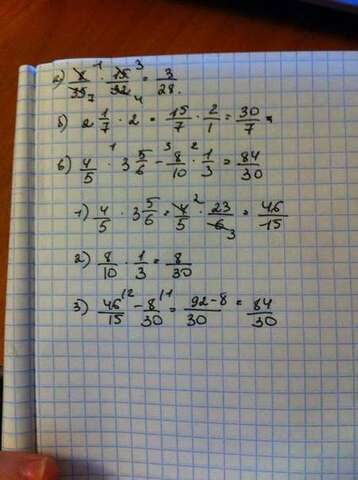 а) 8/35 · 15/32 = 3/28.
б) 2 1/7 · 2 = 15/7 · 2/1 = 30/7 =
в) 4/5 · 3 5/6 - 8/10 · 1/3 = 84/30
1) 4/5 · 3 5/6 = 4/5 · 23/6 = 46/15
2) 8/10 · 1/3 = 8/30
3) 46/15 - 8/30 = 92-8/30 = 84/30